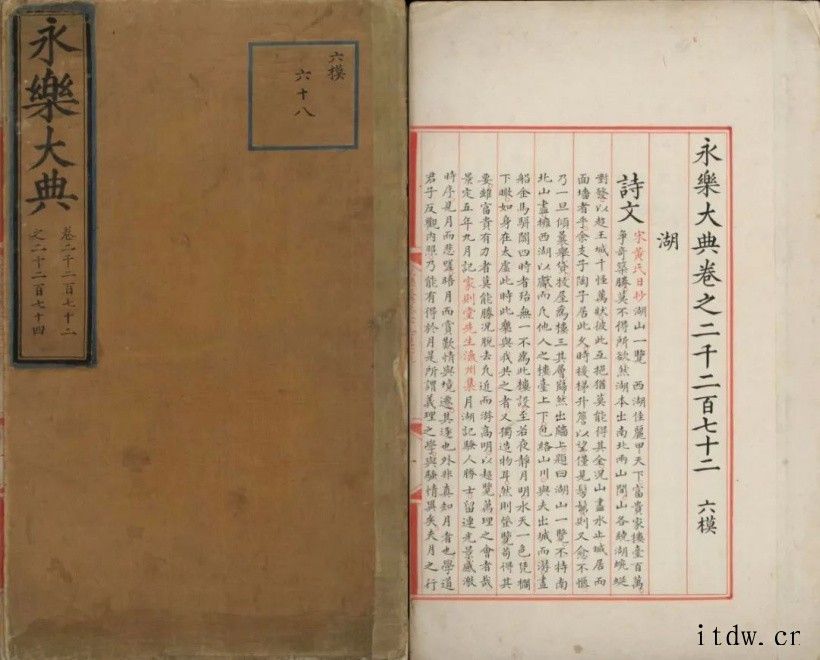 永樂大典
卷二千二百七十二
之二千二百七十四
六模
六十八
永樂大典卷之二千二百七十二 六模
湖
詩文 宋黃氏日抄湖山一覽 西湖佳麗甲天下富貴家樓臺百萬
爭奇築勝莫不得所欲然湖本出南北兩山間山各繞湖蜿蜒
對鶩以趨王城千怪萬狀彼此互抱猶莫能得其全況山盡水止城居而
面墻者乎余支子陶子居此久時接梯升簷以望僅見髣髴則又愈不愜
乃一旦傾囊舉貸屋為樓三其層巋然出牆上題曰湖山一覽不特南
北山盡擁西湖以獻而凡他人之樓臺上下包絡山川與夫出城而游畫
船金馬駢闐四時者殆無一不為此樓設至若夜靜月明水天一色凭欄
下瞰如身在太虛此時此樂與我共之者又獨造物耳然則登覽苟得其
要雖富貴有力者莫能勝況脫去凡近而游高明以超覽萬理之會者哉
景定五年九月記家則堂先生瀛州集月湖記騷人勝士留連光景感激
時序見月而悲晤月而賞歎情與境遷其遠也外非真知月者也學道
君子反觀內照乃能有得於月是所謂義理之學與騷情異矣夫月之行
itdw.cr